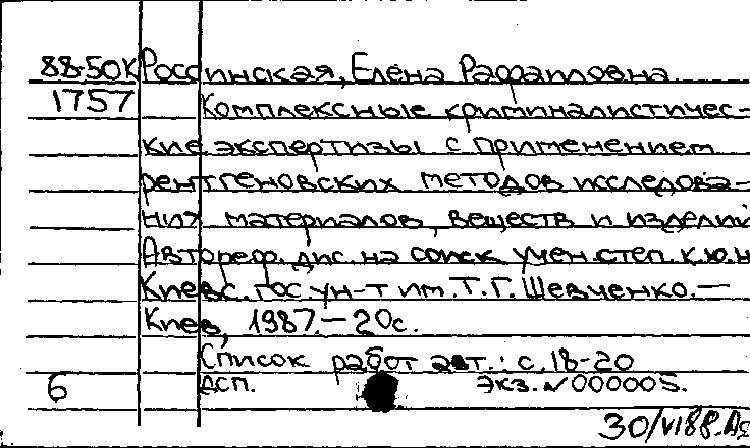 88-50К Россинская, Елена Рафаиловна
1757 Комплексные криминалистичес-
кие экспертизы с применением
рентгеновских методов исследова-
ния материалов, веществ и изделий
Автореф. дис. на соиск учен. степ. к.ю.н
Киевс. гос. ун-т им. Т.Г. Шевченко. —
Киев, 1987. — 20с.
Список работ авт.: с. 18-20
6 ДСП. Экз. № 000005.
30/VI88.